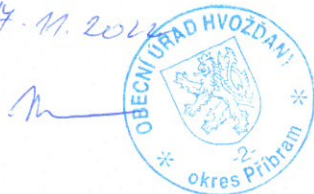 7. 11.
OBECNÍ ÚŘAD HVOŽĎANY
-2-
okres Příbram